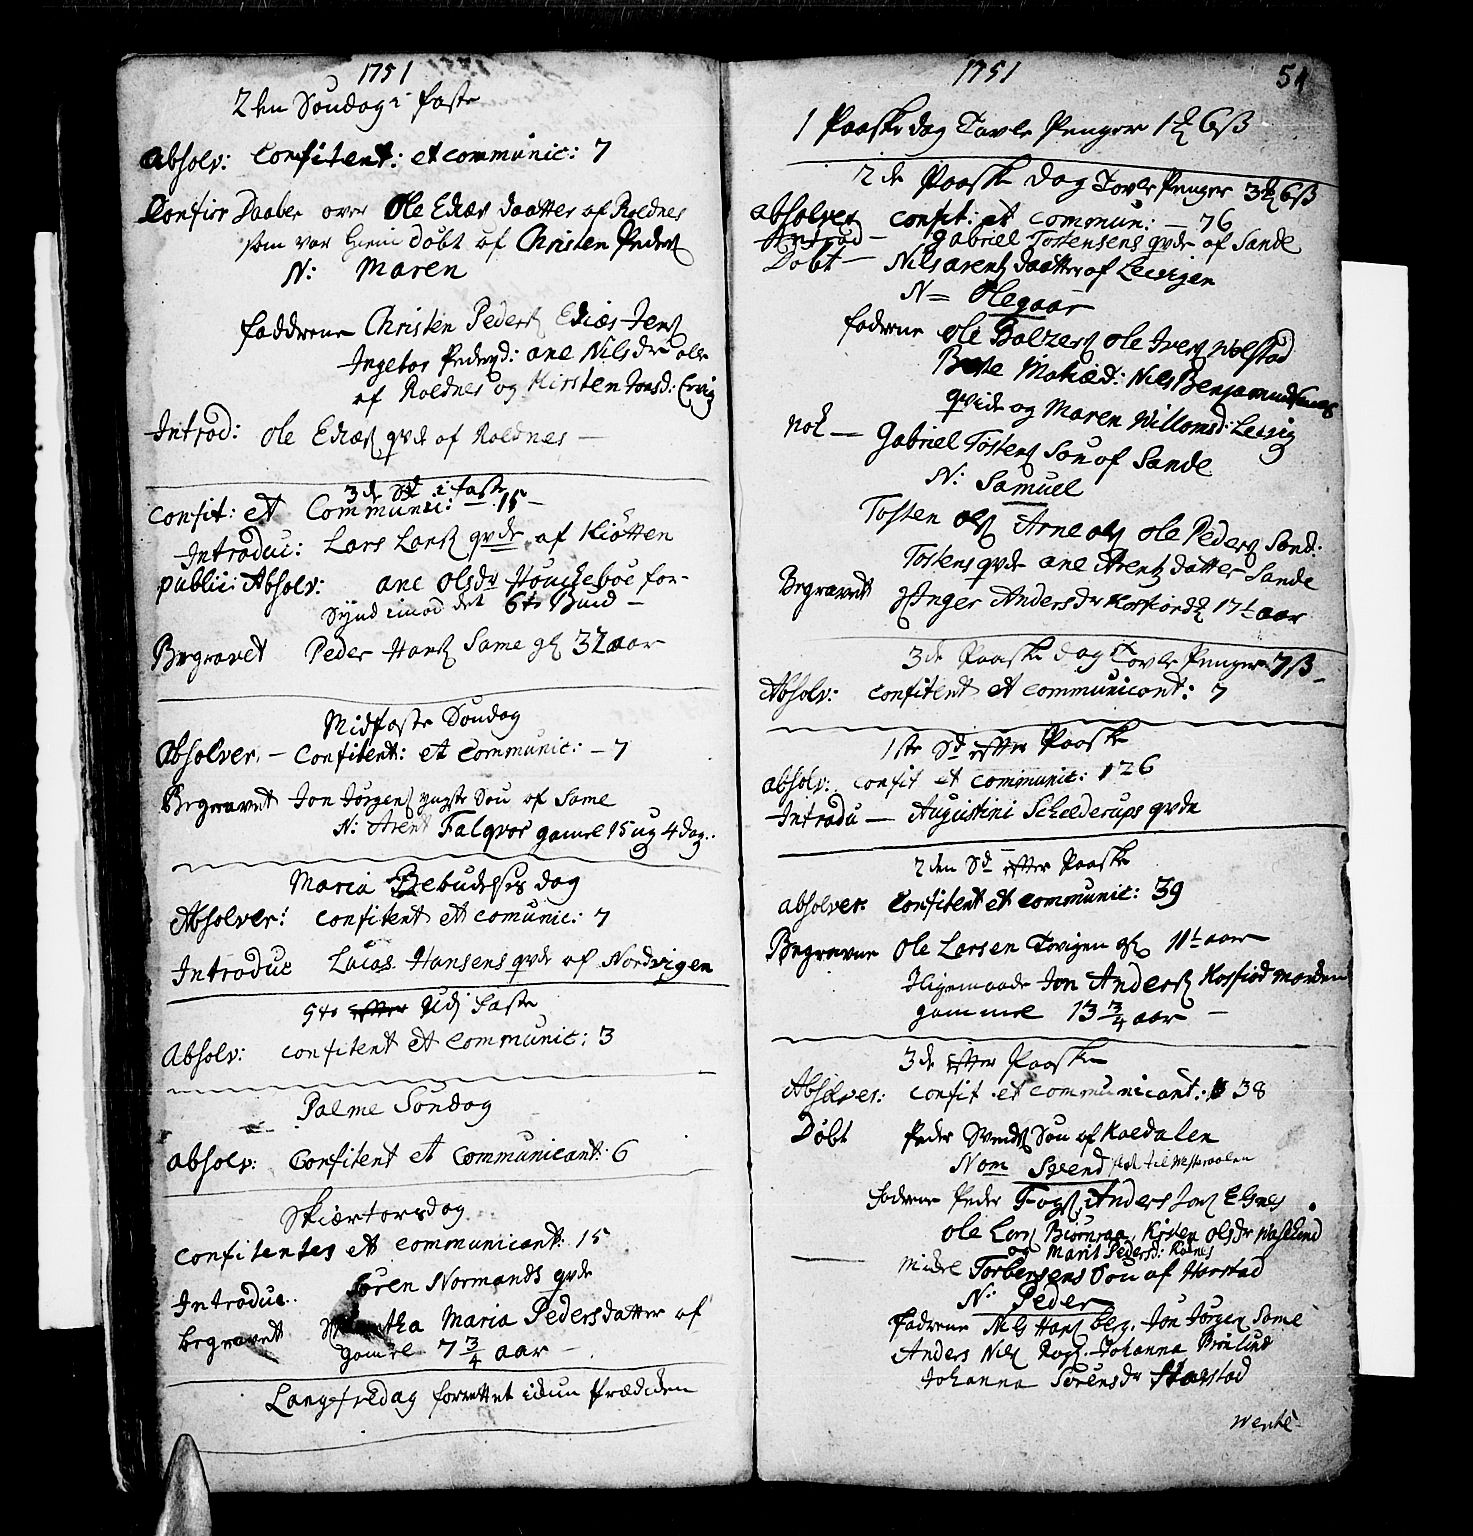 1751
2den Søndag i faste
Absolv: Confitent: et communic: 7
Confir Daaben over Ole Edies daatter af Roldnes
som var hiem døbt af Christen Peders
N: Maren
faddrene Christen Peders Edies Jens
Ingebor Peders d: ane Nils dr alle
af Roldnes og Kirsten Jons d:
Introd: Ole Edies qvde af Roldnes —
3de Sd i faste
Confit: et Communic: — 15 —
Introduc: Lars Lars qvde af Kiøtten
public: Absolv: ane Olsdr for-
Synd imod det 6te Bud —
Begravet Peder Hans Same gl 32 aar
Midfaste Søndag
Absolver. — Confitent: et Communic: — 7
Begravet Jon Jørgens yngste Søn af Same
N: Arent Falqvor gamel 15 ug 4 dag.
Maria Bebudelses dag
Absolver: Confitent et comunic: 7
Introduc Lucas Hansens qvde af Nordvigen
5te Udj Faste
Absolv: confitent et Communic: 3
Palme Søndag
absolv: Confitent et Communicant: 6
Skiertorsdag
Confitentes et Communicant: 15
Introduc. Søren Normands qvde
begravet Maria Pedersdatter af
gamel 7 3/4 aar —
Langfredag forrettet idun Prædiken
1751 54
1 Paaske dag Tavle Penger 1 6ß
2de Paaske dag Tavle Penger 3 6ß
absolver confit: et Commun: — 76
Introd — Gabriel Tostensens qvde af Sande
Døbt — Nils arents daatter af Levigen
N = Olegaar
fadrene Ole Balzers Ole Ivers
Berte Matiæd: Nils Benjamins
qvide og Maren Willomsd: Levig
not — Gabriel Tostens Søn af Sande
N: Samuel
Tosten Ols Arne Ols Ole Peders Sand:
Tostens qvde ane Arents datter Sande
Begravet Inger Anders dr 17½ aar
3de Paaske dag Tavle Penger 7ß
Absolv: confitent et communicant: 7
1ste Sd efter Paaske
absolv: confit et communic: 126
Introdu — Augustini Schelderups qvde
2den Sd efter Paaske
absolver. Confitent et communic: 39
Begravne Ole Larsen Tovigen gl 11½ aar
Iligemaade Jon Anders Korsfiord
gammel 13 3/4 aar —
3de efter Paaske
Absolver: confit et communicant: 38
Døbt Peder Svends Søn af Kaldalen
Nom Svend
fadrene Peder Anders Jons
Ole Lars Kirsten Olsdr
og Marit Pedersd:
Torbersens Søn af Harstad
N: Peder
Fadrene Nils Hans berg. Jon Jørgen Same
Anders Nils Johanna
Johanna Sørensdr Harstad